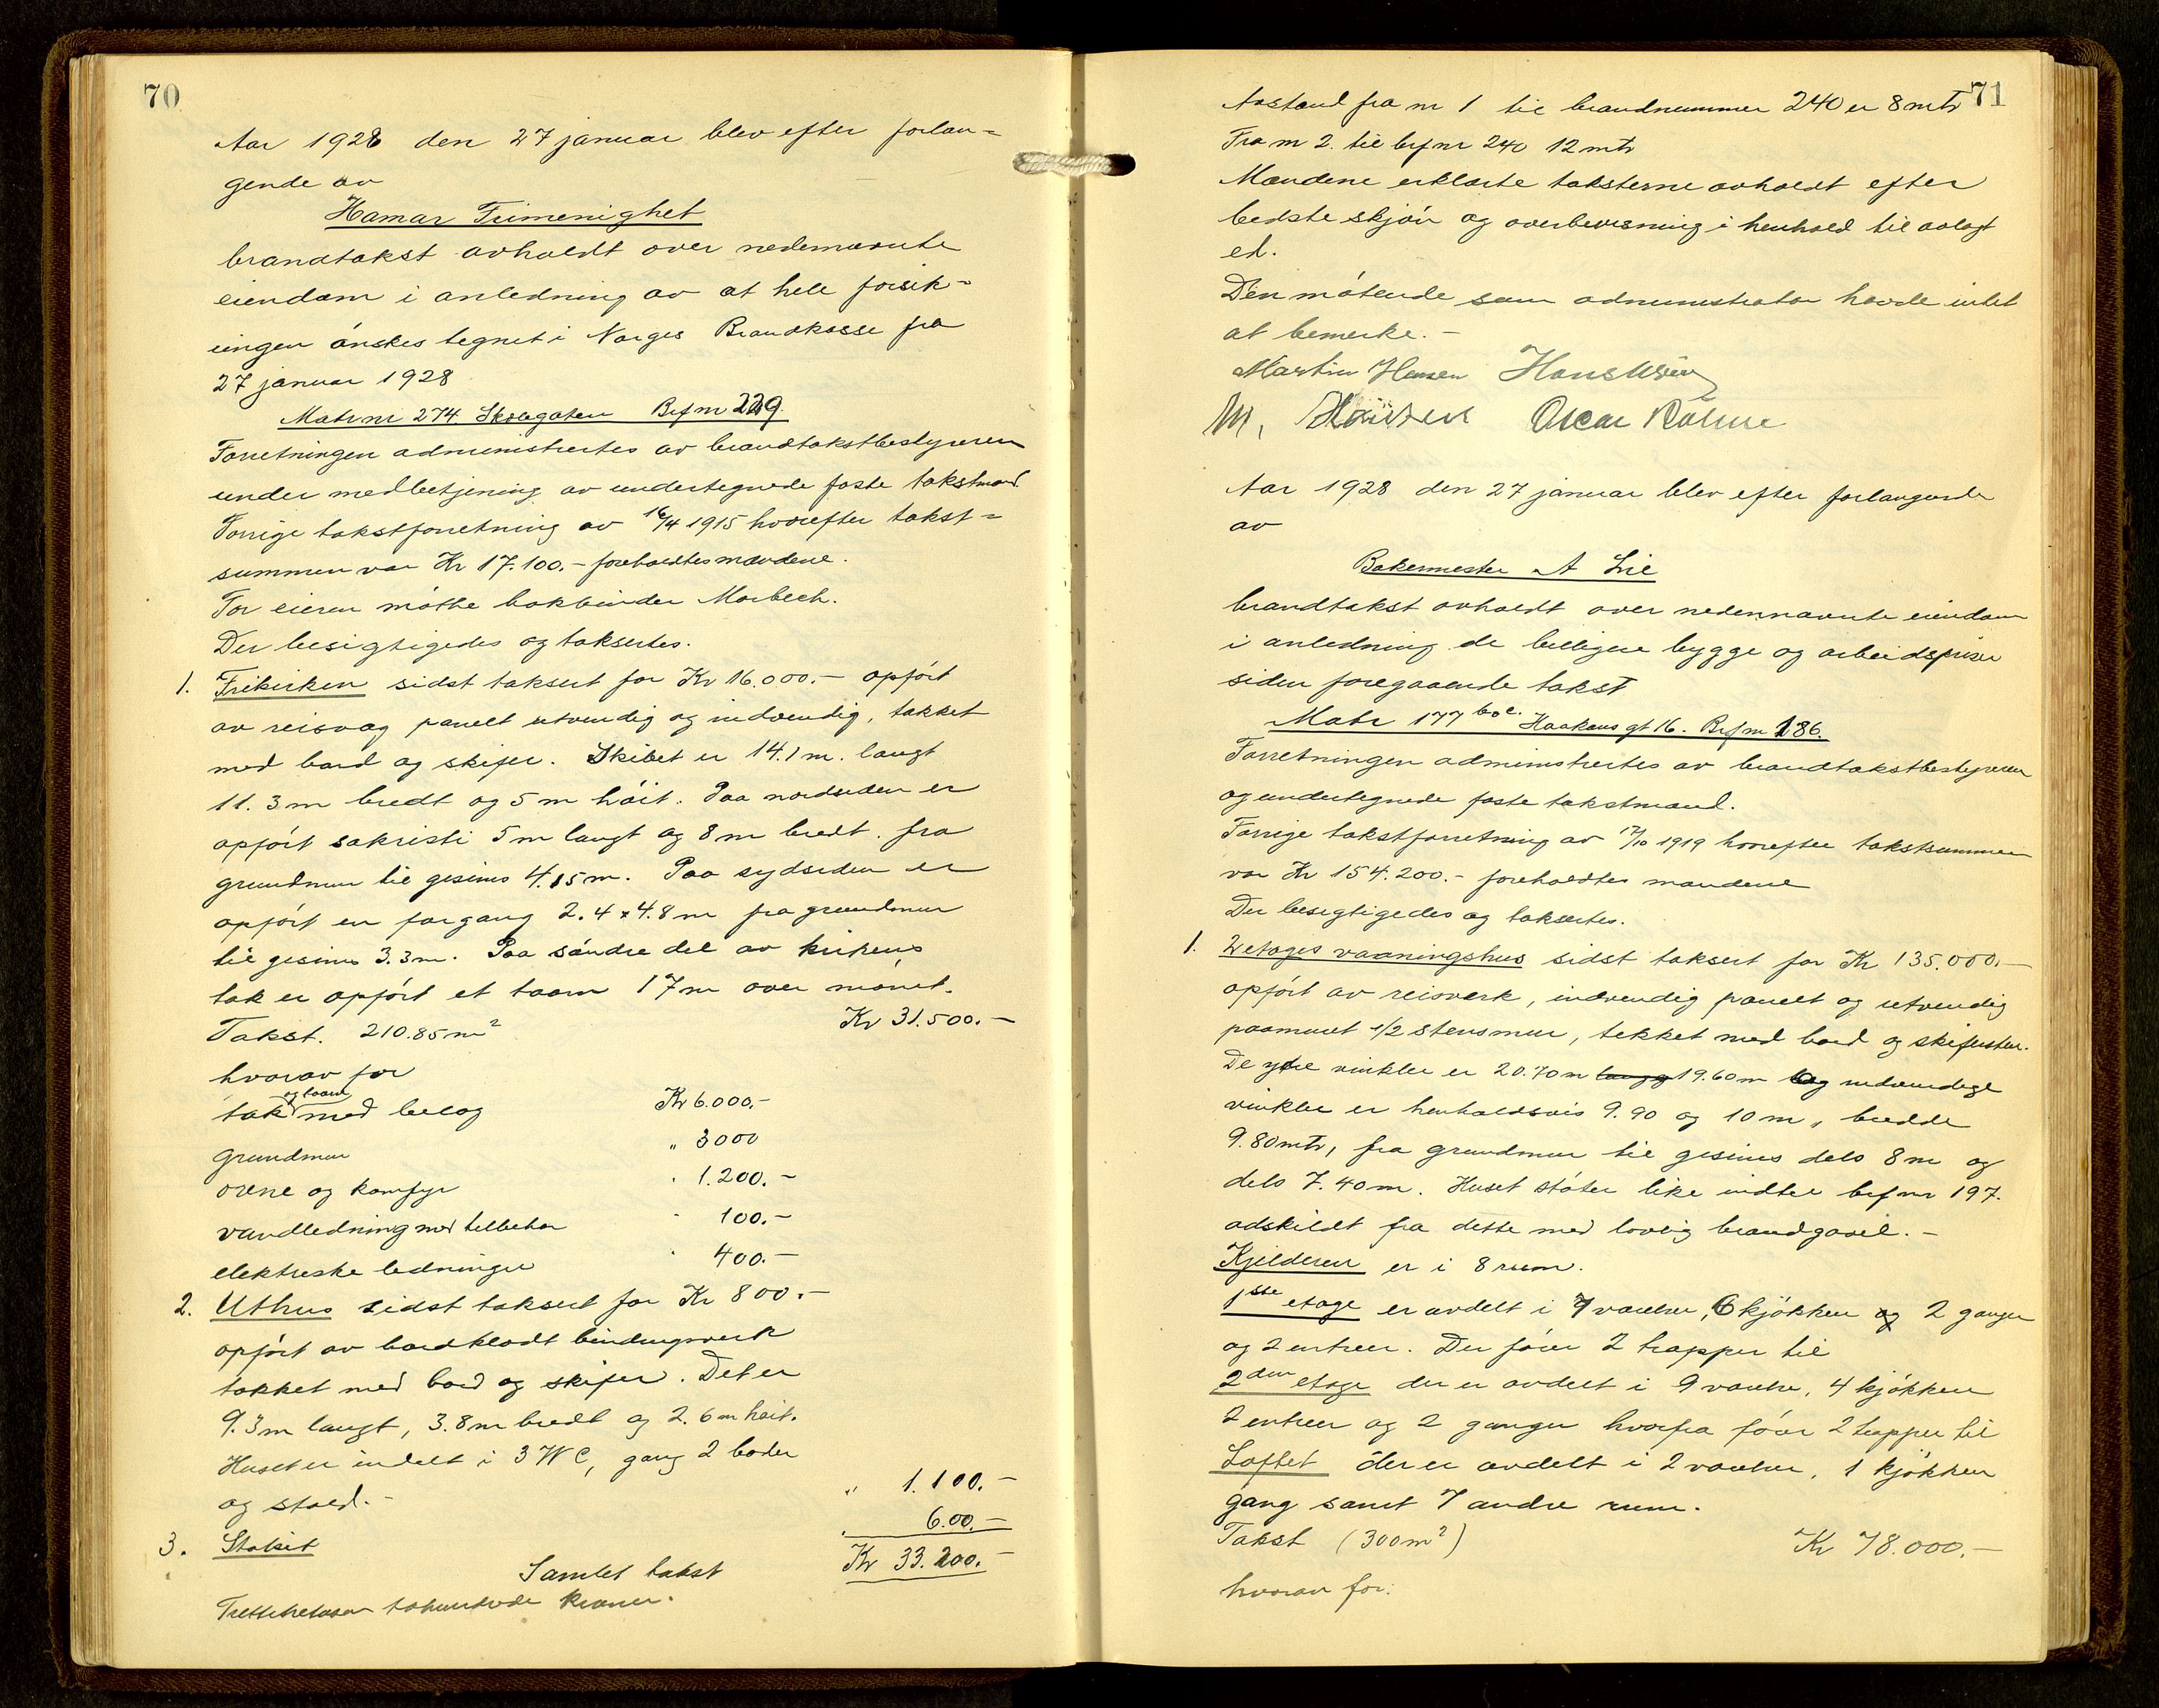 70
Aar 1928 den 27 januar blev efter forlan=
gende av
Hamar Frimenighet
brandtakst avholdt over nedennævnte
eiendom i anledning av at hele forsik=
ringen ønskes tegnet i Norges Brandkasse fra
27 januar 1928
Matr nr 274. Skolegaten Brf nr 229.
Forretningen administrertes av brandtakstbestyreren
under medbetjening av undertegnede faste takstmænd.
Forrige takstforretning av 16/4 1915 hvorefter takst=
summen var Kr 17.100.- foreholdtes mændene.
For eieren møtte bokbinder Morbech.
Der besigtigedes og taksertes.
1. Frikirken sidst taksert for Kr 16.000.- opført
av reisverk panelt utvendig og indvendig, takket
med bord og skifer. Skibet er 14.1 m. langt
11.3 m bredt og 5 m høit. Paa nordsiden er
opført sakristi 5 m langt og 8 m bredt. fra
grundmur til gesims 4.15 m. Paa sydsiden er
opført en forgang 2.4 x 4.8 m fra grundmur
til gesims 3.3 m. Paa søndre del av kirkens
tak er opført et taarn 17 m over mønet.
Takst. 210.85 m² Kr 31.500.-
hvorav for
tak og taarn med beleg Kr 6.000.-
grundmur " 3000
ovne og komfyr " 1.200.-
vandledning med tilbehør " 100.-
elektriske ledninger " 400.-
2. Uthus sidst taksert for Kr 800.-
opført av bordklædt bindingsverk
takket med bord og skifer. Det er
9.3 m langt, 3.8 m bredt og 2.6 m høit.
Huset er indelt i 3 WC, gang 2 boder
og stald.- " 1.100.-
3. Stakit " 6.00.-
Samlet takst Kr 33.200.-
Trettitretusen tohundrede kroner.
71
Avstand fra nr 1 til brandnummer 240 er 8 mtr
Fra nr 2. til brf nr 240 12 mtr
Mændene erklærte taksterne avholdt efter
bedste skjøn og overbevisning i henhold til avlagt
ed.
Den møtende som administrator havde intet
at bemerke.-
Martin Hansen Hans
M. Oscar
Aar 1928 den 27 januar blev efter forlangende
av
Bakermester A Lie
brandtakst avholdt over nedennævnte eiendom
i anledning de billigere bygge og arbeidspriser
siden foregaaende takst
Matr 177 b o c. Haakons gt 16. Brf nr 186.
Forretningen administrertes av brandtakstbestyreren
og undertegnede faste takstmænd.
Forrige takstforretning av 17/10 1919 hvorefter takstsummen
var Kr 154.200.- foreholdtes mændene
Der besigtigedes og taksertes.
1. 2 etages vaaningshus sidst taksert for Kr 135.000.-
opført av reisverk, indvendig panelt og utvendig
paamuret 1/2 stensmur, tekket med bord og skifersten.
De ydre vinkler er 20.70 m langt 19.60 m og indvendige
vinkler er henholdsvis 9.90 og 10 m, bredde
9.80 mtr, fra grundmur til gesims dels 8 m og
dels 7.40 m. Huset støter like indtil brf nr 197.
adskildt fra dette med lovlig brandgavl.-
Kjelderen er i 8 rum.
1ste etage er avdelt i 7 værelser, 6 kjøkken og 2 ganger
og 2 entreer. Der fører 2 trapper til
2den etage der er avdelt i 9 værelser, 4 kjøkken
2 entreer og 2 ganger hvorfra fører 2 trapper til
Loftet der er avdelt i 2 værelser, 1 kjøkken
gang samt 7 andre rum.
Takst (300 m²) Kr 78.000.-
hvorav for: